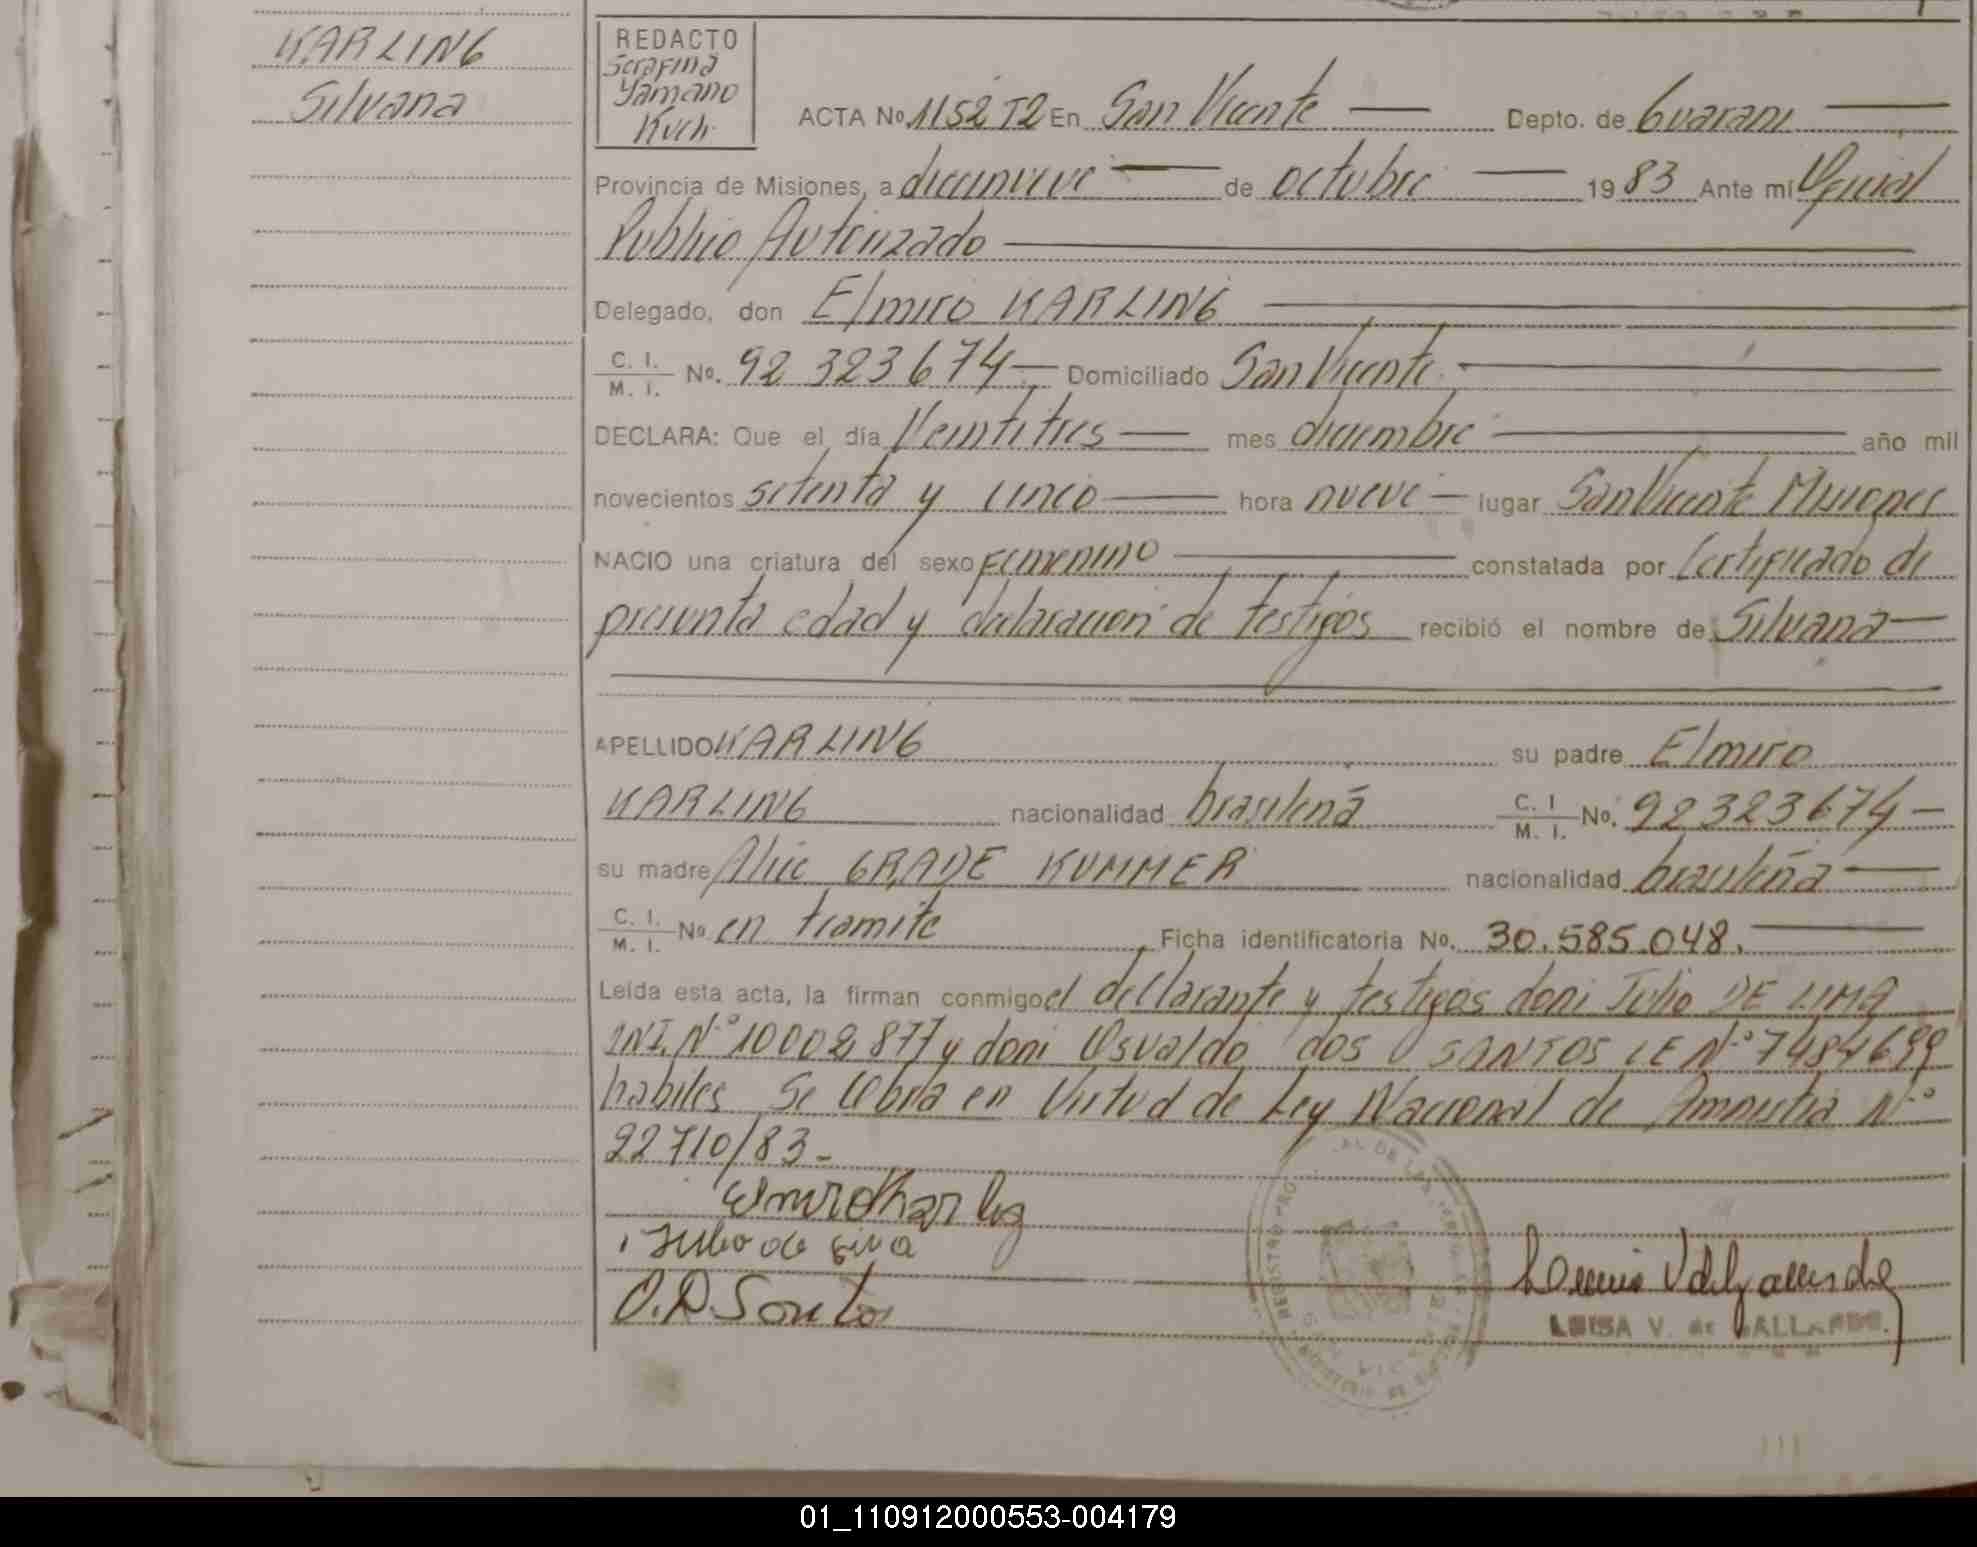 KARLING
Silvana
REDACTO
Serafina
Yamano
Kuch.
ACTA No. 1152 T2 En San Vicente Depto. de Guarani
Provincia de Misiones, a diecinueve de octubre 1983 Ante mi Oficial
Publico Autorizado
Delegado, don Elmiro KARLING
C. I. M. I. No. 92 323 674 Domiciliado San Vicente
DECLARA: Que el día Veintitres mes diciembre año mil
novecientos setenta y cinco hora nueve lugar San Vicente Misiones
NACIO una criatura del sexo Femenino constatada por Certificado de
presunta edad y declaracion de testigos recibió el nombre de Silvana
APELLIDO KARLING su padre Elmiro
KARLING nacionalidad brasileña C. I M. I. No. 92323674-
su madre Alic GRADE KUMMER nacionalidad brasileña
C. I. M. I. No. en tramite Ficha identificatoria No. 30.585.048.
Leída esta acta, la firman conmigo el declarante y testigos don: Julio DE LIMA
DNI. N° 10002877 y don: Osvaldo DOS SANTOS LE N° 7484699
habiles Se labra en Virtud de Ley Nacional de Amnistia N°
22710/83-
O.D. Santos
LUISA V. de GALLARDO.
01_110912000553-004179